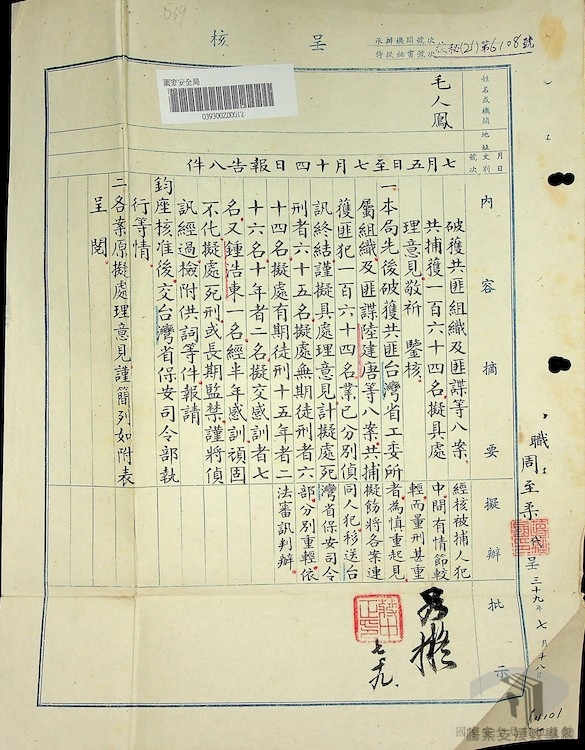 呈核
承辦機關號次
侍從秘書號次
秘(21)第6108號
國家安全局
039300Z00012
姓名或機關
地址
毛人鳳
月日
文別
號次
七月五日至七月十四日報告八件
內容摘要
破獲共匪組織及匪諜等八案
共捕獲一百六十四名擬具處
理意見敬祈 鑒核
一本局先後破獲共匪台灣省工委所
屬組織及匪諜陸建唐等八案共捕
獲匪犯一百六十四名業已分別偵
訊終結謹擬具處理意見計擬處死
刑者六十五名擬處無期徒刑者六
十四名擬處有期徒刑十五年者二
十六名十年者二名擬交感訓者七
名又鍾浩東一名經半年感訓頑固
不化擬處死刑或長期監禁謹將偵
訊經過檢附供詞等件報請
鈞座核准後交台灣省保安司令部執
行等情
二各案原擬處理意見謹簡列如附表
呈閱
擬辦
經核被捕人犯
中間有情節較
輕而量刑甚重
者為慎重起見
擬飭將各案連
同人犯移送台
灣省保安司令
部分別重輕依
法審訊判辦
職周至柔
代
呈三十九年七月十八日
批示
如擬
蔣中正印
七十九